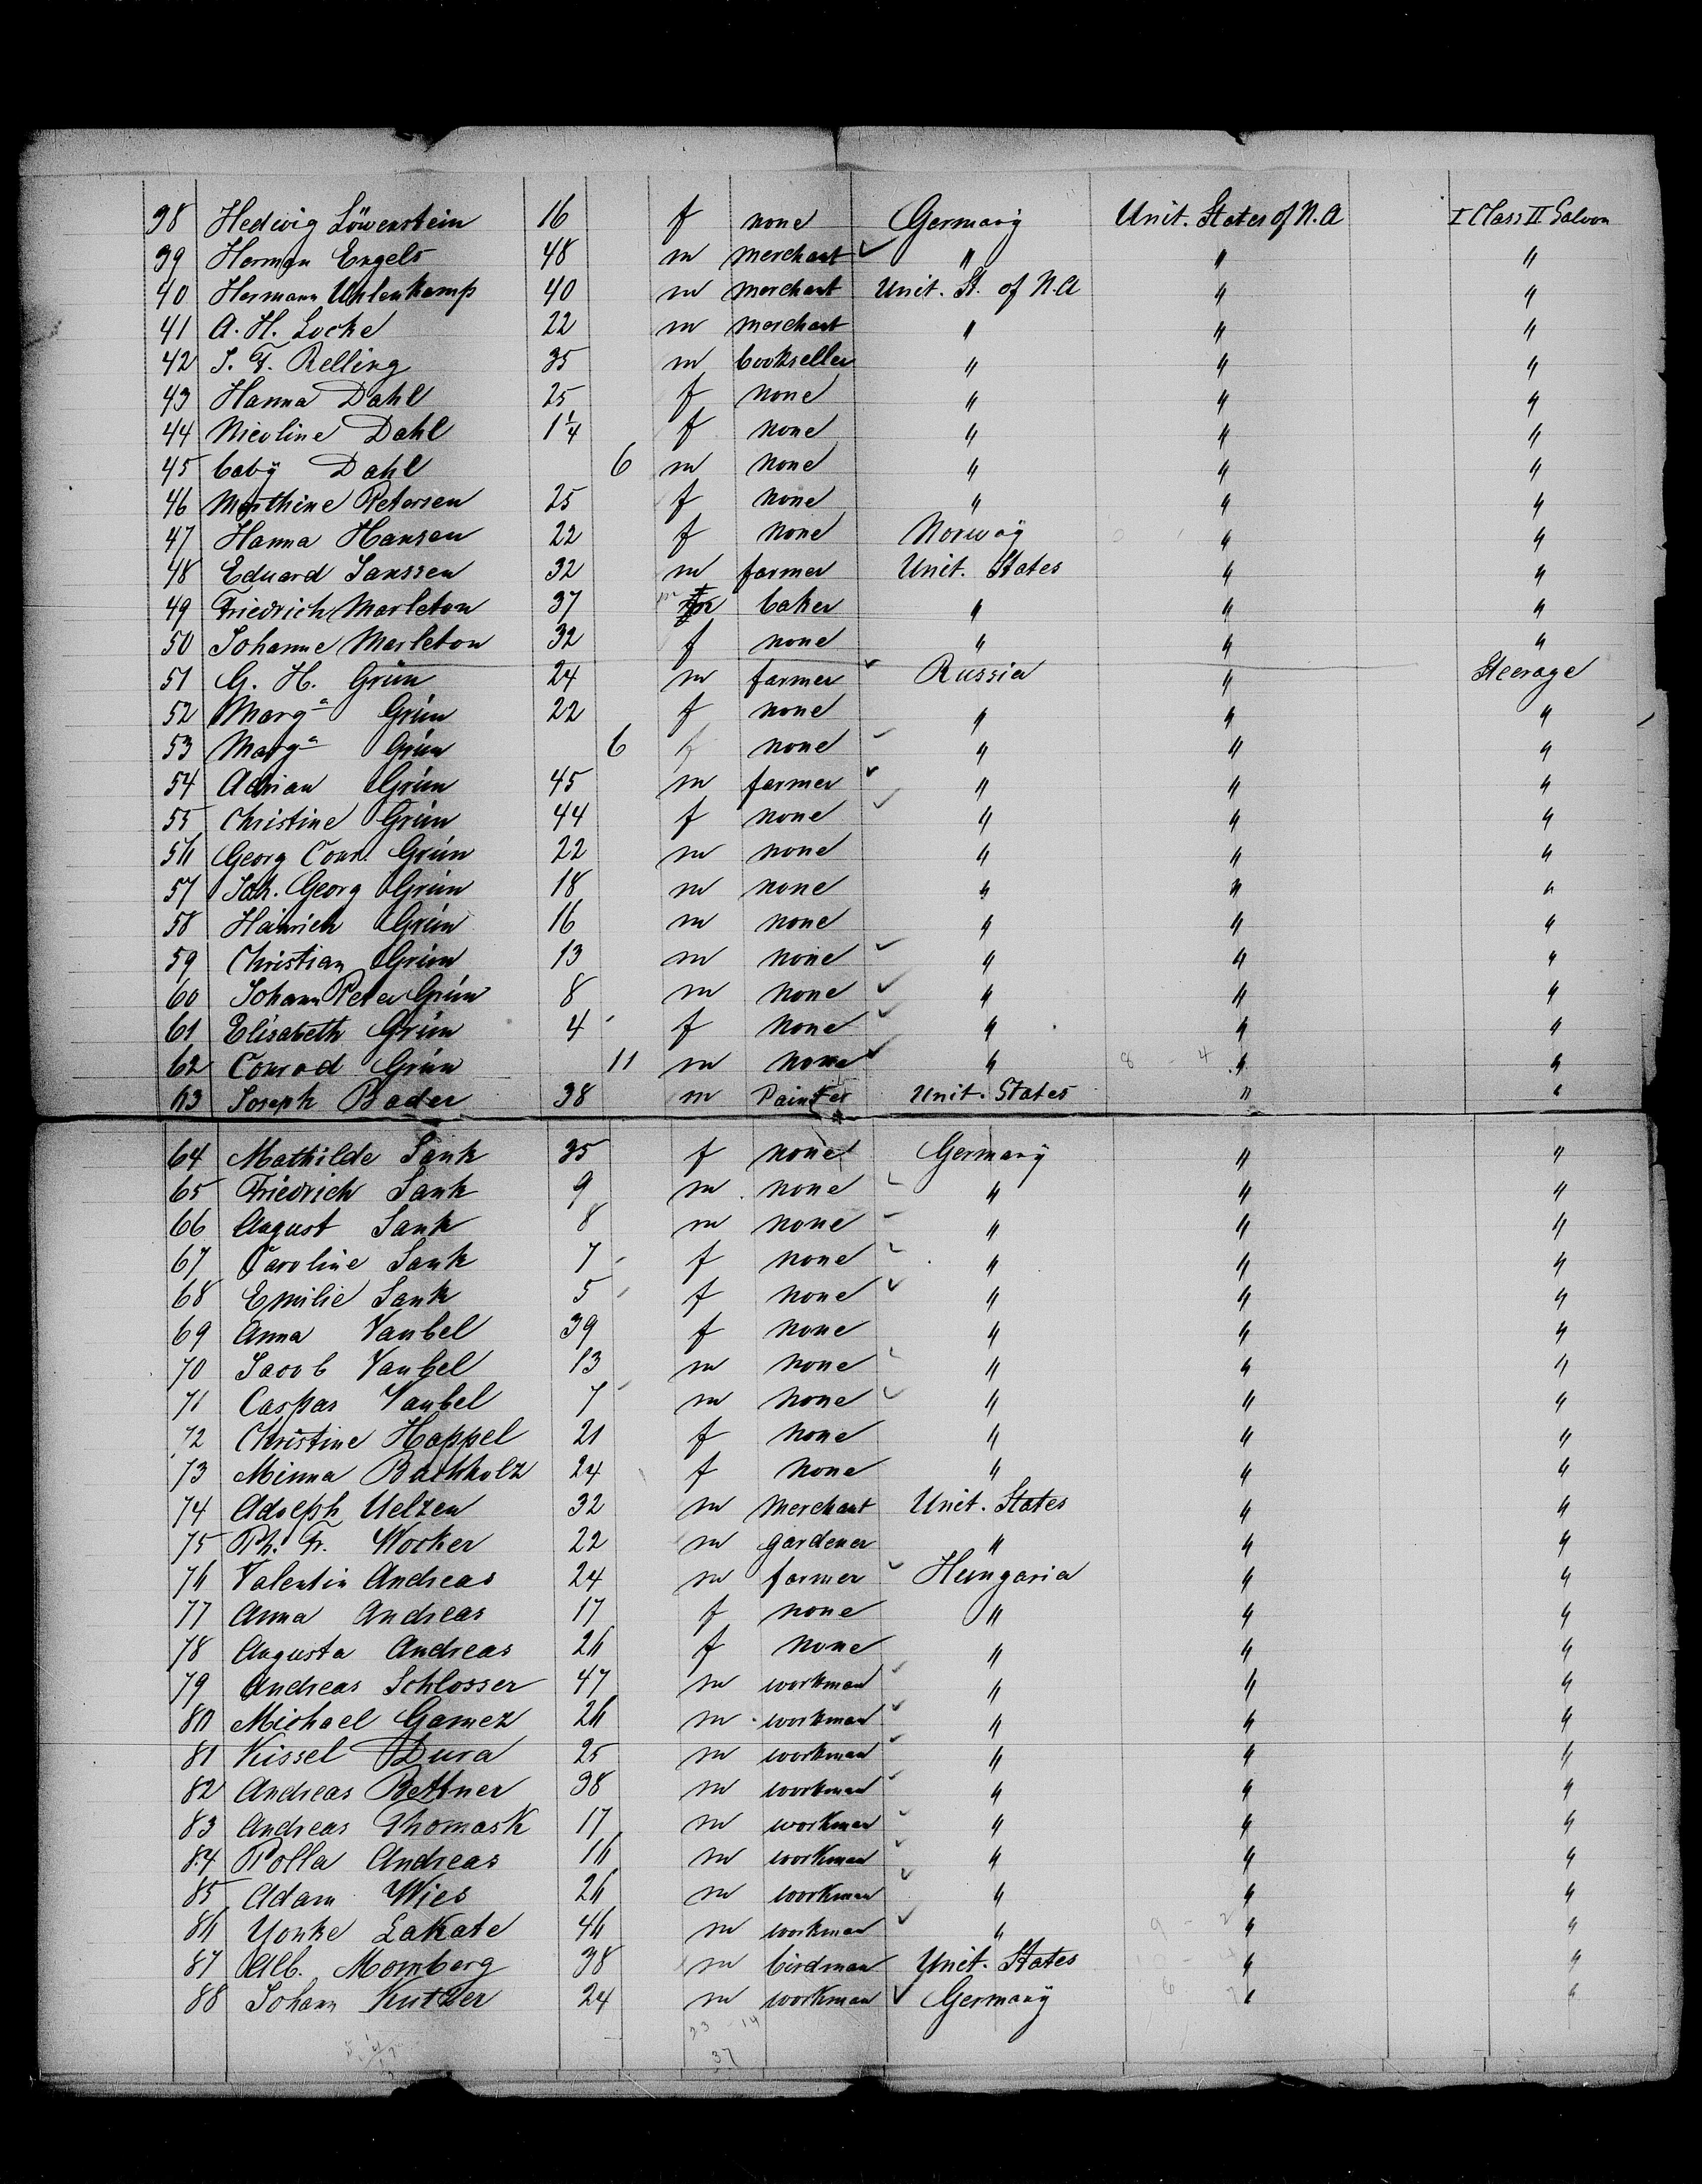 38 Hedwig Löwenstein 16 f none Germany Unit. States of N.A I Class II Saloon
39 Herman Engels 48 m merchant " " "
40 Hermann Uhlenkamp 40 m merchant Unit. St. of N.A " "
41 A. H. Locke 22 m merchant " " "
42 I. F. Relling 35 m bookseller " " "
43 Hanna Dahl 25 f none " " "
44 Nicoline Dahl 1 1/4 f none " " "
45 baby Dahl 6 m none " " "
46 Marthine Petersen 25 f none " " "
47 Hanna Hansen 22 f none Norway " "
48 Eduard Janssen 32 m farmer Unit. States " "
49 Friedrich Marleton 37 m baker " " "
50 Johanne Marleton 32 f none " " "
51 G. H. Grün 24 m farmer Russia " Steerage
52 Marga Grün 22 f none " " "
53 Marga Grün 6 f none " " "
54 Adrian Grün 45 m farmer " " "
55 Christine Grün 44 f none " " "
56 Georg Conr. Grün 22 m none " " "
57 Joh. Georg Grün 18 m none " " "
58 Heinrich Grün 16 m none " " "
59 Christian Grün 13 m none " " "
60 Johann Peter Grün 8 m none " " "
61 Elisabeth Grün 4 f none " " "
62 Conrad Grün 11 m none " 8 - 4 " "
63 Joseph Bader 38 m Painter Unit. States " "
64 Mathilde Sank 35 f none Germany " "
65 Friedrich Sank 9 m none " " "
66 August Sank 8 m none " " "
67 Caroline Sank 7 f none " " "
68 Emilie Sank 5 f none " " "
69 Anna Vaubel 39 f none " " "
70 Jacob Vaubel 13 m none " " "
71 Caspar Vaubel 7 m none " " "
72 Christine Happel 21 f none " " "
73 Minna Buchholz 24 f none " " "
74 Adolph Uelzen 32 m merchant Unit. States " "
75 Ph. Fr. Wocker 22 m gardener " " "
76 Valentin Andreas 24 m farmer Hungaria " "
77 Anna Andreas 17 f none " " "
78 Augusta Andreas 26 f none " " "
79 Andreas Schlosser 47 m workman " " "
80 Michael Gamez 26 m workman " " "
81 Kissel Dura 25 m workman " " "
82 Andreas Bettner 38 m workman " " "
83 Andreas Thomask 17 m workman " " "
84 Polla Andreas 16 m workman " " "
85 Adam Wies 26 m workman " " "
86 Yonke Lakate 46 m workman " " "
87 Alb. Momberg 38 m birdman Unit. States " "
88 Johann Kutzer 24 m workman Germany " "
23 14
37